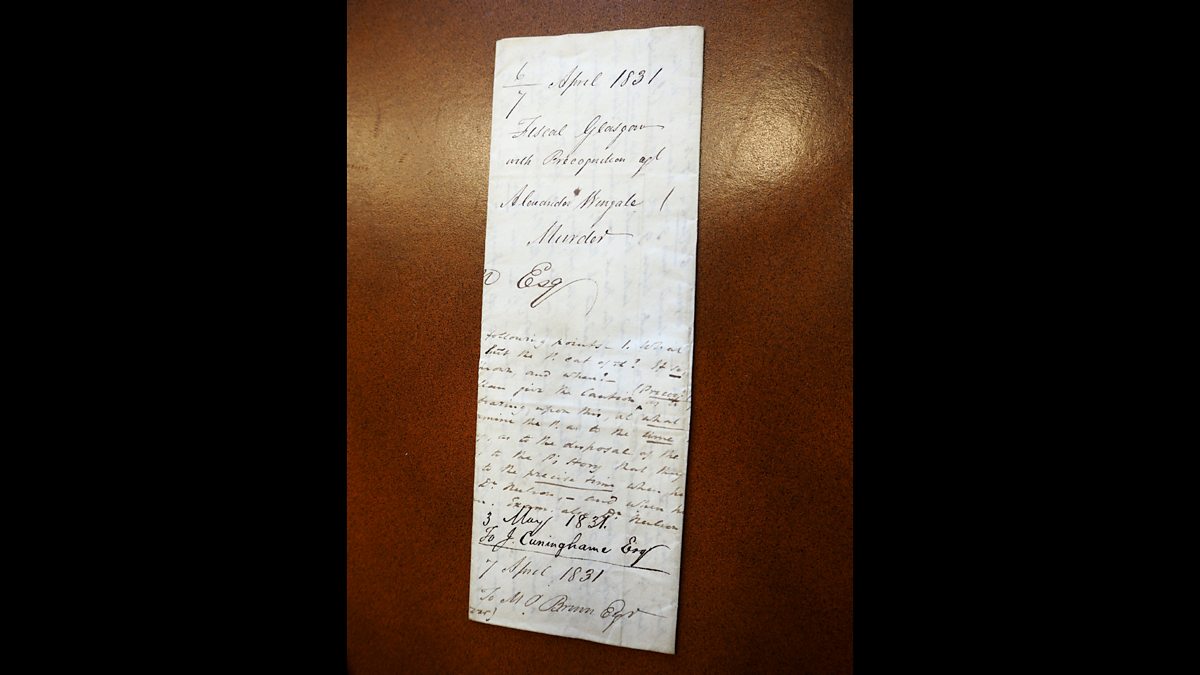 6/7 April 1831
Fiscal Glasgow
with Precognition agt
Alexander Wingate
Murder
Esq
following points - 1. What
that the P. eat of it? It
and when? -
give the Caution, as
bearing upon this, at what
the P. as to the time
as to the disposal of the
to the P's story that
to the precise time when he
Dr. Neilson, - and when he
also Dr. Neilson
3 May 1831.
To J. Cuninghame Esq
7 April 1831
To Mr. Brown Esqr